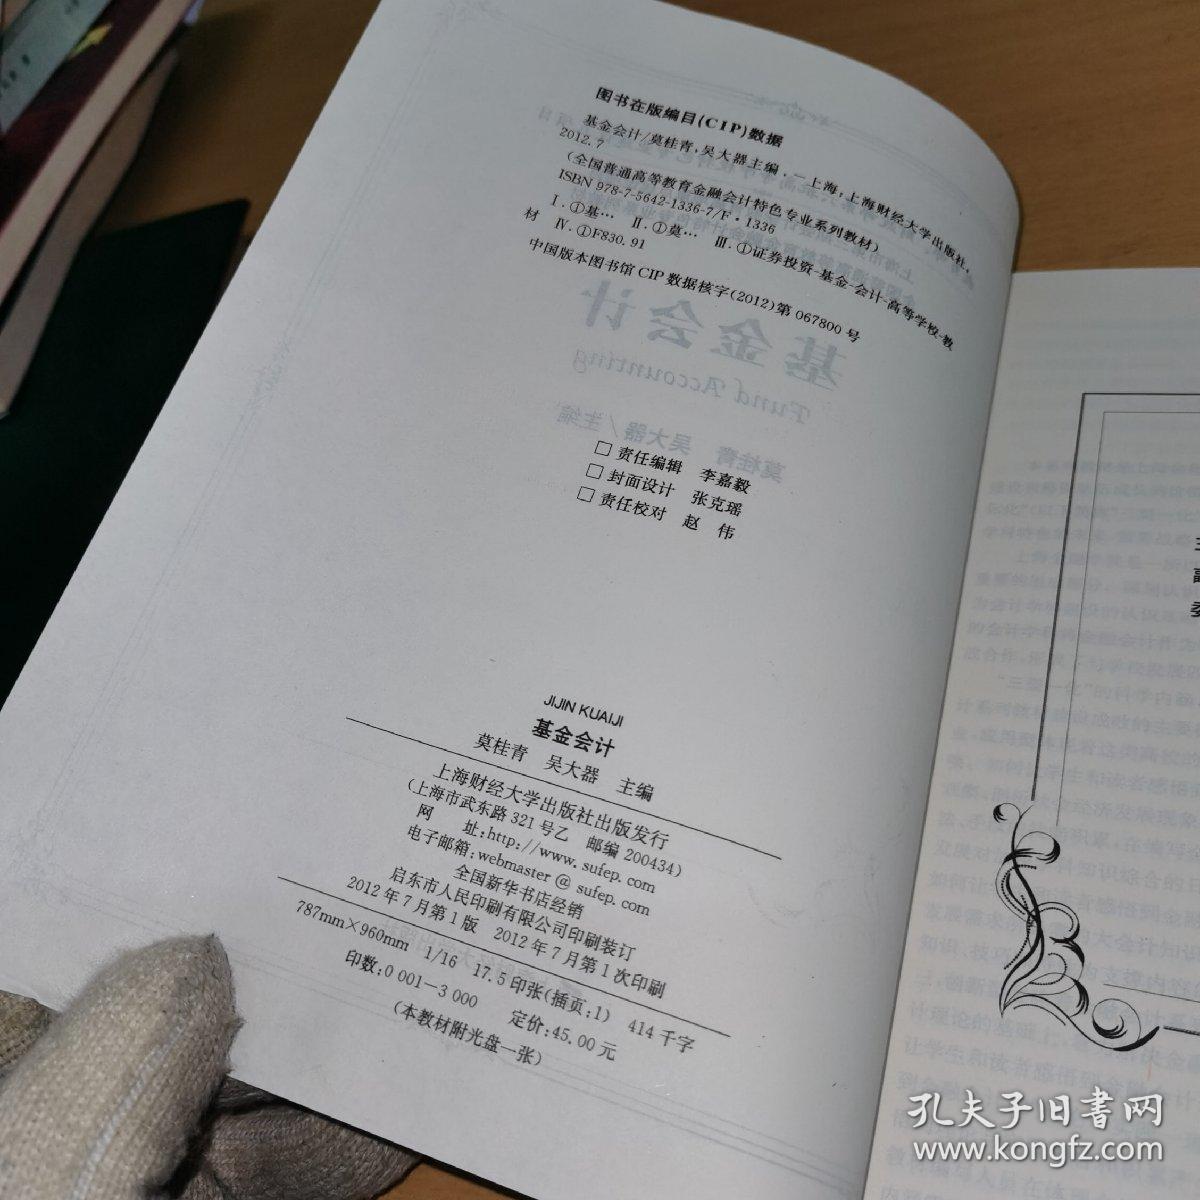 图书在版编目(CIP)数据
基金会计/莫桂青,吴大器主编.—上海:上海财经大学出版社,
2012.7
(全国普通高等教育金融会计特色专业系列教材)
ISBN 978-7-5642-1336-7/F·1336
Ⅰ.①基… Ⅱ.①莫… Ⅲ.①证券投资-基金-会计-高等学校-教
材 Ⅳ.①F830.91
中国版本图书馆CIP数据核字(2012)第067800号
基金会计
Fund Accounting
莫桂青 吴大器/主编
□ 责任编辑 李嘉毅
□ 封面设计 张克瑶
□ 责任校对 赵 伟
JIJIN KUAIJI
基金会计
莫桂青 吴大器 主编
上海财经大学出版社出版发行
(上海市武东路321号乙 邮编200434)
网 址:http://www.sufep.com
电子邮箱:webmaster@sufep.com
全国新华书店经销
启东市人民印刷有限公司印刷装订
2012年7月第1版 2012年7月第1次印刷
787mm×960mm 1/16 17.5印张(插页:1) 414千字
印数:0 001-3 000 定价:45.00元
(本教材附光盘一张)
孔夫子旧书网
www.kongfz.com